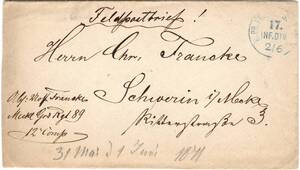 Feldpostbrief!
17.
INF. DIV.
2/6
Herrn Chr. Francke
Schwerin i/Meckl.
Ritterstraße 3.
Francke
Meckl Gren Rgt 89
12 Comp
31 Mai & 1 Juni 1871